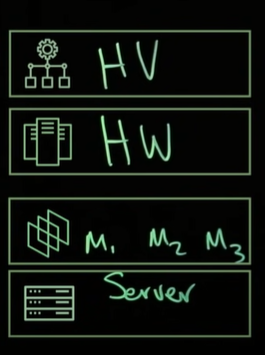 HV
HW
M₁ M₂ M₃
Server